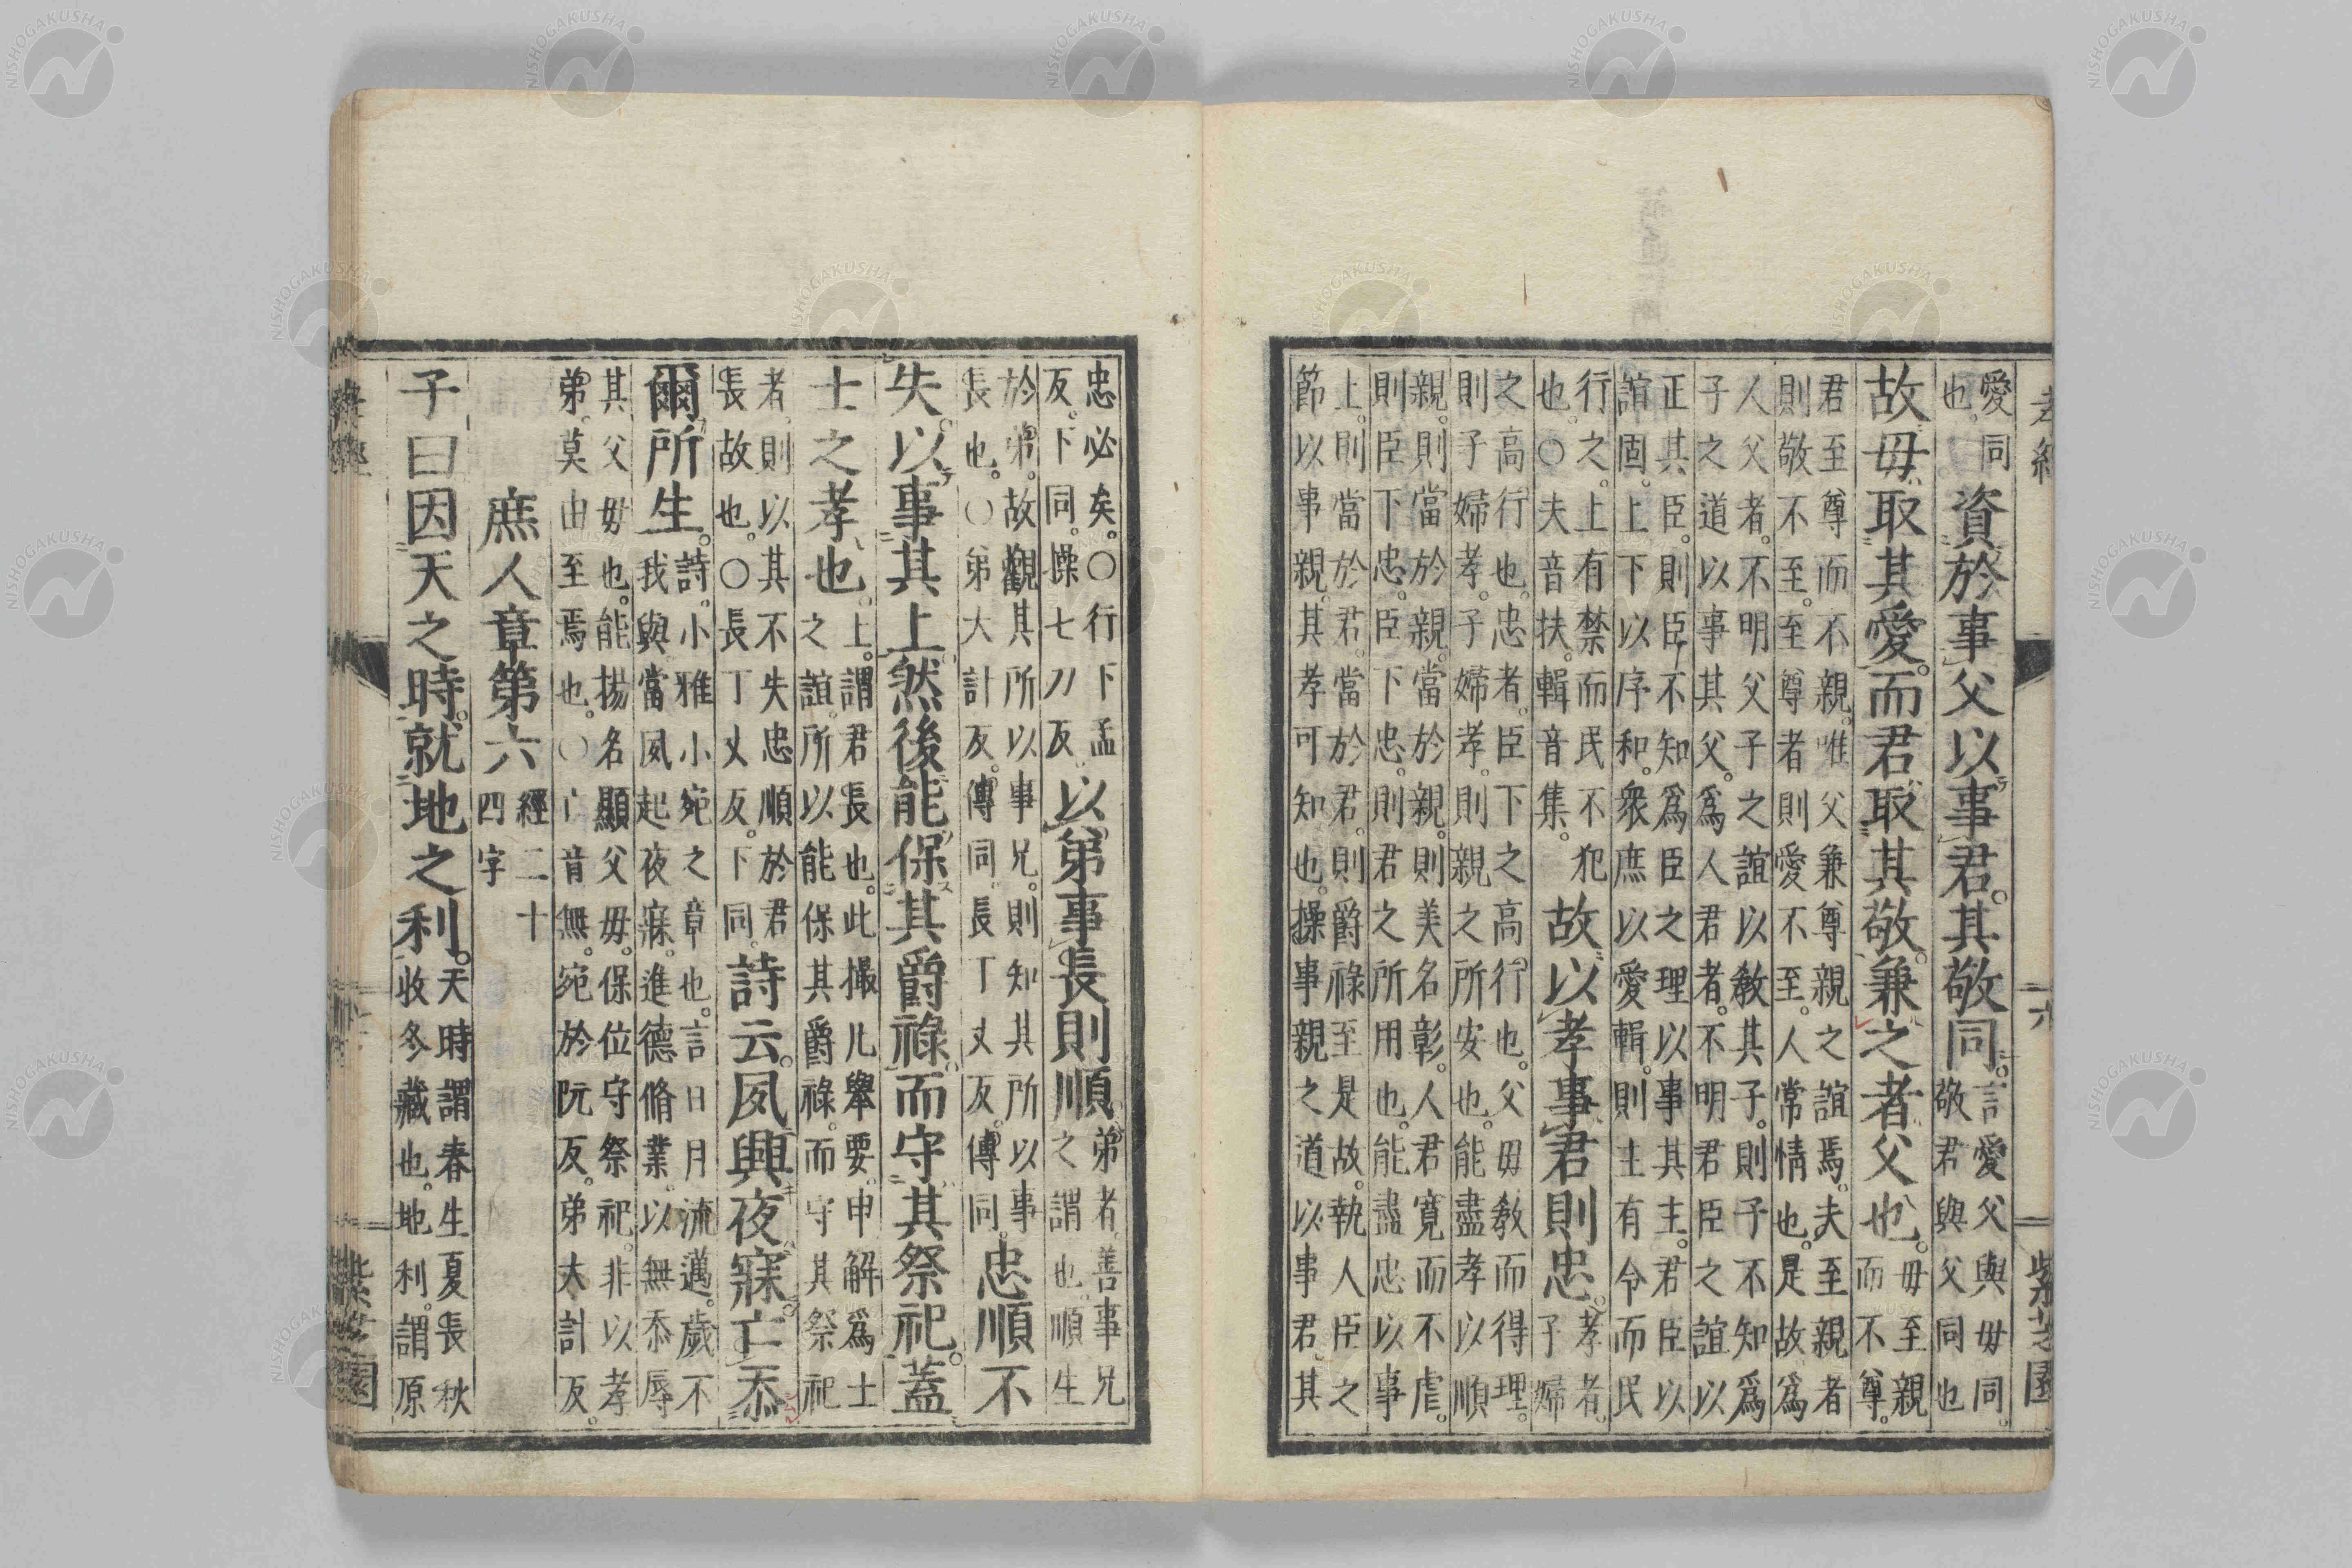 孝經 六 紫芝園
愛同
也。
資於事父以事君。其敬同。
言愛父與母同。
敬君與父同也
故母取其愛。而君取其敬。兼之者父也。
母至親
而不尊。
君至尊而不親。唯父兼尊親之誼焉。夫至親者
則敬不至。至尊者則愛不至。人常情也。是故爲
人父者。不明父子之誼以敎其子。則子不知爲
子之道以事其父。爲人君者。不明君臣之誼以
正其臣。則臣不知爲臣之理以事其主。君臣以
誼固。上下以序和。衆庶以愛輯。則主有令而民
行之。上有禁而民不犯
也。○夫音扶。輯音集。
故以孝事君則忠。
孝者。
子婦
之高行也。忠者。臣下之高行也。父母敎而得理。
則子婦孝。子婦孝。則親之所安也。能盡孝以順
親。則當於親。當於親。則美名彰。人君寬而不虐。
則臣下忠。臣下忠。則君之所用也。能盡忠以事
上。則當於君。當於君。則爵祿至。是故執人臣之
節以事親。其孝可知也。操事親之道以事君。其
忠必矣。○行下孟
反。下同。操七刀反。
以弟事長則順
弟者。善事兄
之謂也。順生
於弟。故觀其所以事兄。則知其所以事
長也。○弟大計反。傳同。長丁丈反。傳同。
忠順不
失。以事其上然後能保其爵祿。而守其祭祀。蓋
士之孝也。
上。謂君長也。此撮凡舉要。申解爲士
之誼。所以能保其爵祿。而守其祭祀
者。則以其不失忠順於君
長故也。○長丁丈反。下同。
詩云。夙興夜寐。亡忝
爾所生。
詩。小雅小宛之章也。言日月流邁。歲不
我與。當夙起夜寐。進德脩業。以無忝辱
其父母也。能揚名顯父母。保位守祭祀。非以孝
弟。莫由至焉也。○亡音無。宛於阮反。弟大計反。
庶人章第六
經二十
四字
子曰因天之時。就地之利。
天時謂春生夏長秋
收冬藏也。地利。謂原
NISHOGAKUSHA